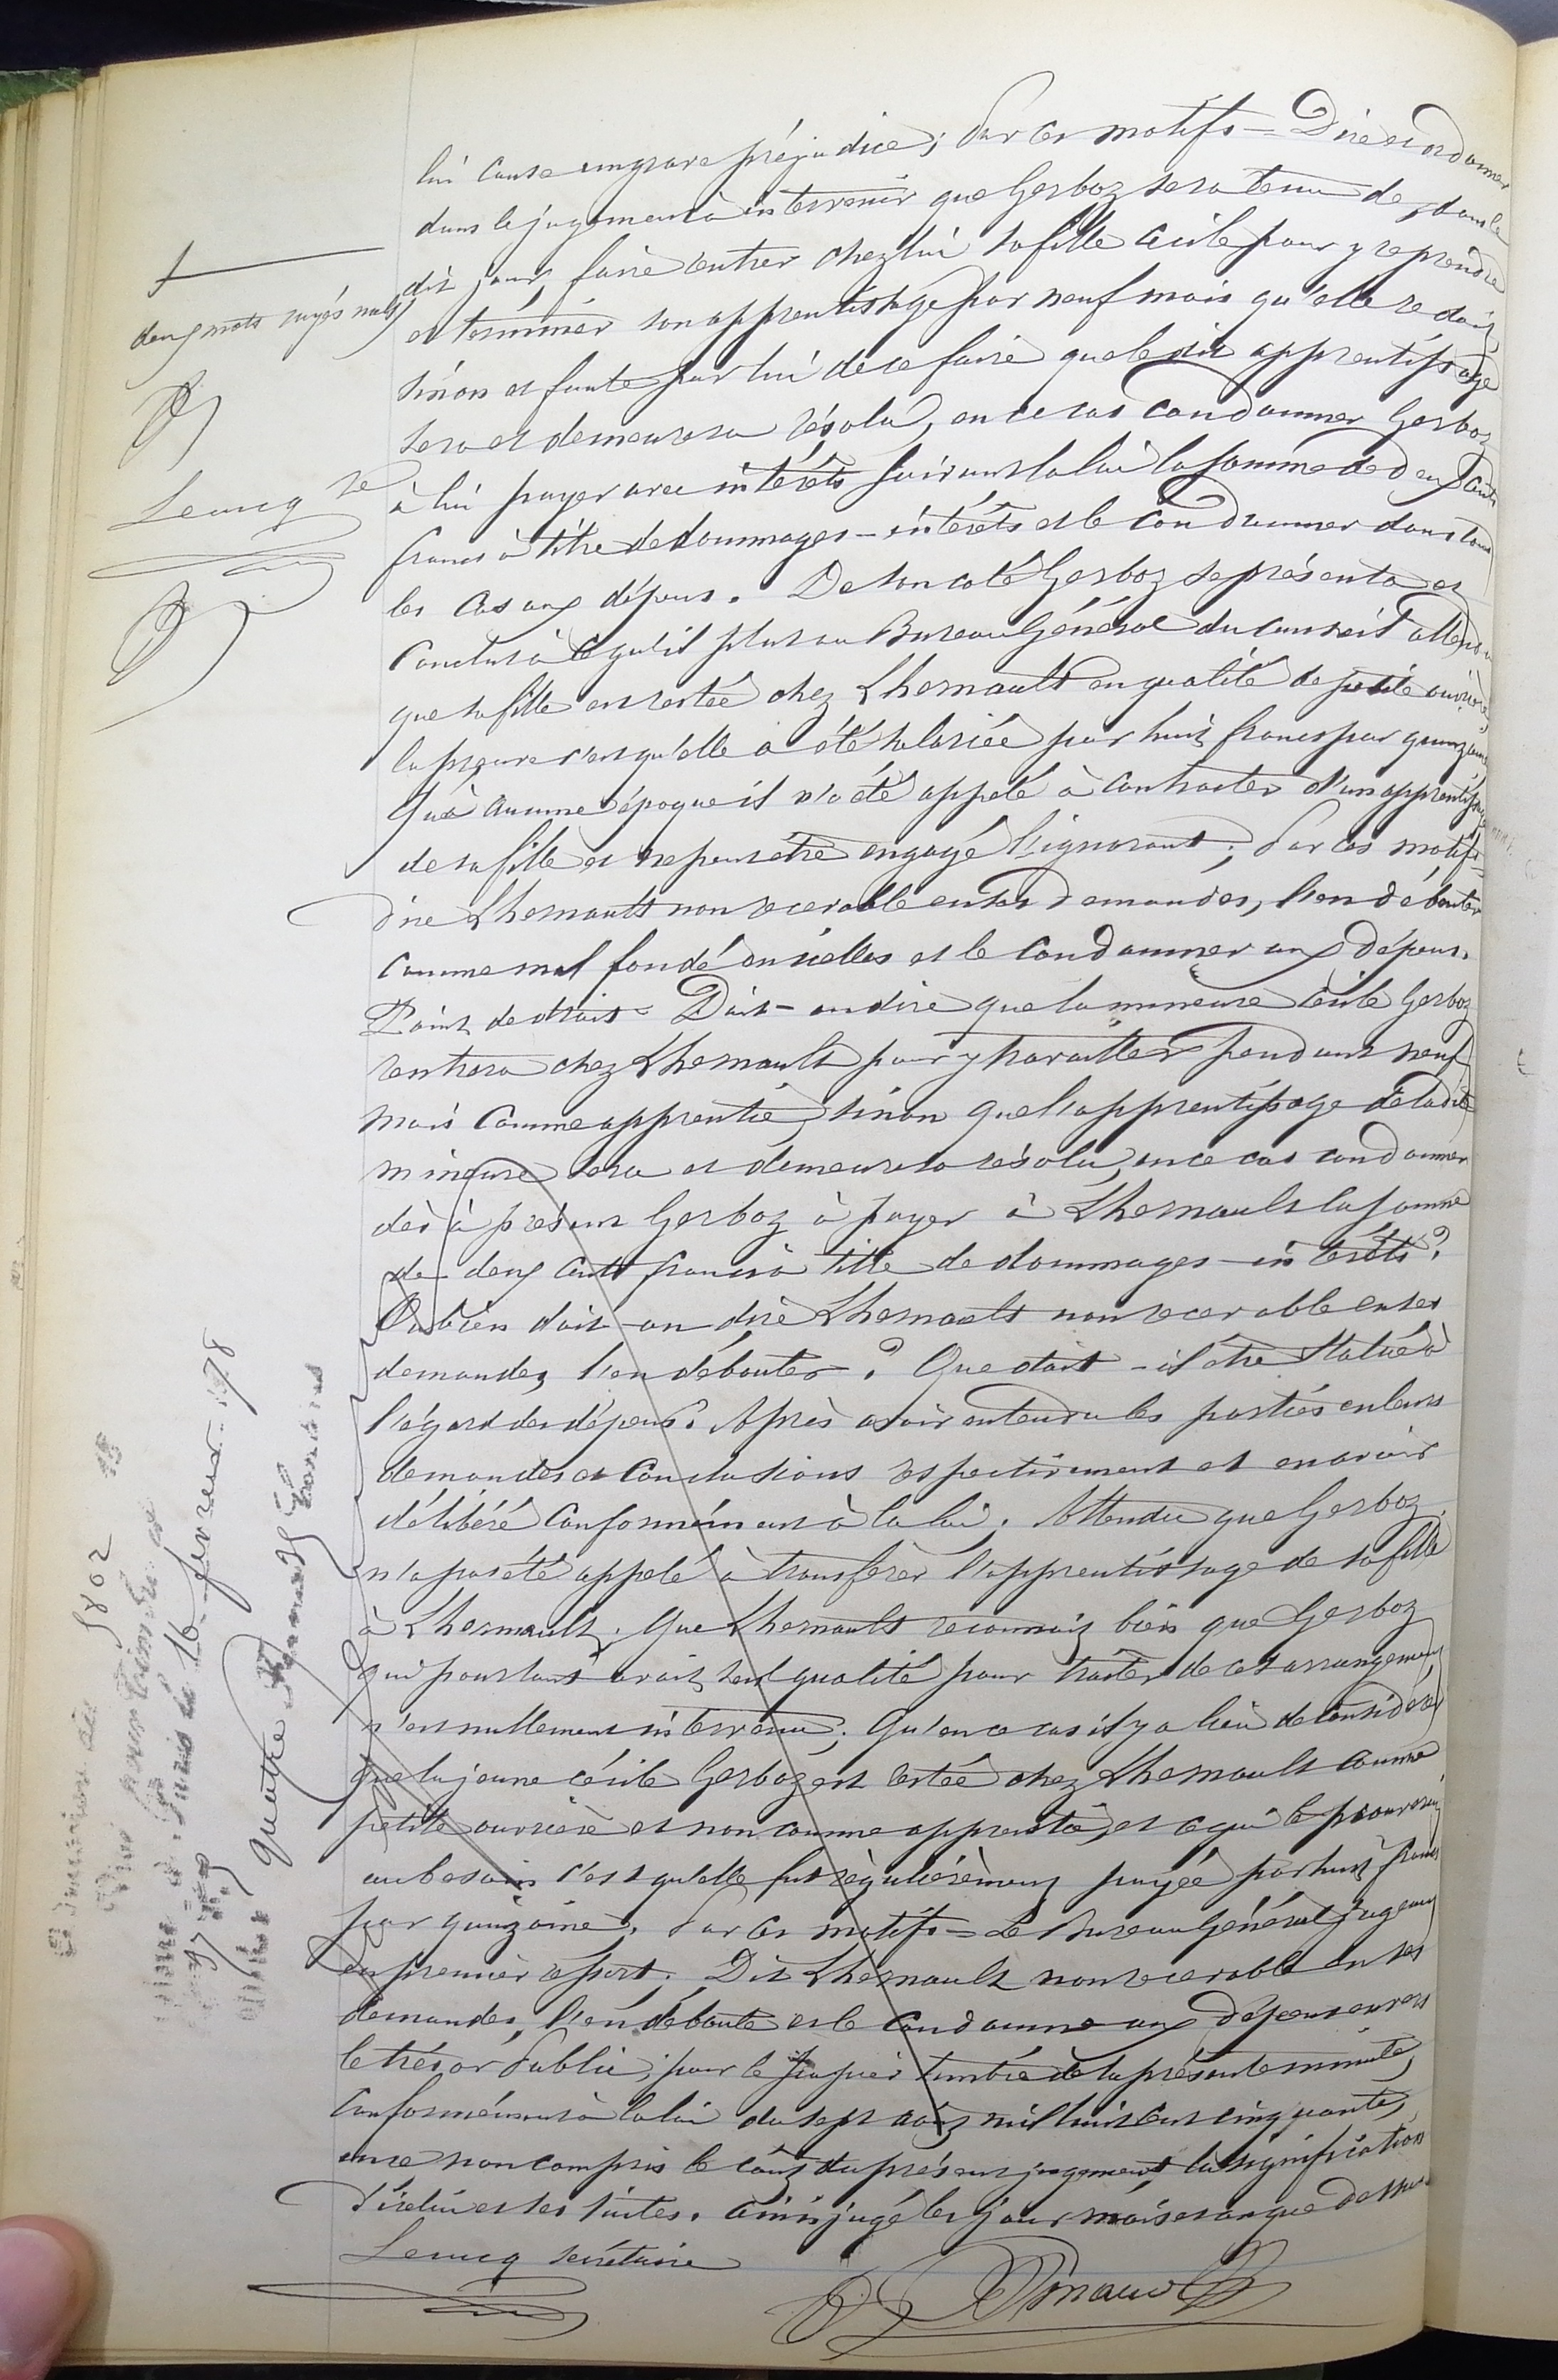 lui cause un grave préjudice; Par ces motifs = Dire et ordonner
dans le jugement à intervenir que Gerboz sera tenu de, dans le
dit jour, faire rentrer chez lui sa fille Cécile pour y reprendre
et terminer son apprentissage par neuf mois qu'elle redoit,
sinon et faute par lui de ce faire que le dit apprentissage
sera et demeurera résolu, en ce cas condamner Gerboz
à lui payer avec intérêts suivant la loi la somme de deux cents
francs à titre de dommages-intérêts et le condamner dans tous
les cas aux dépens. De son coté Gerboz se présenta et
conclut à ce qu'il plut au Bureau Général du Conseil attendu
que sa fille est restée chez Lhernault en qualité de petite ouvrière
la preuve c'est qu'elle a été salariée par huit francs par quinzaine
Qu'à aucune époque il n'a été appelé à contracter d'un apprentissage
de sa fille et ne peut être engagé l'ignorant; Par ces motifs =
dire Lhernault non recevable en ses demandes, l'en débouter
comme mal fondé en icelles et le condamner aux dépens.
Point de droit = Doit-on dire que la mineure Cécile Gerboz
rentrera chez Lhernault pour y travailler pendant neuf
mois comme apprentie, sinon que l'apprentissage de la dite
mineure sera et demeurera résolu, en ce cas condamner
dès à présent Gerboz à payer à Lhernault la somme
de deux cents francs à titre de dommages-intérêts?
Ou bien doit-on dire Lhernault non recevable en ses
demandes, l'en débouter? Que doit-il être statué à
l'égard des dépens? Après avoir entendu les parties en leurs
demandes et conclusions respectivement et en avoir
délibéré conformément à la loi. Attendu que Gerboz
n'a pas été appelé à transférer l'apprentissage de sa fille
à Lhernault; Que Lhernault reconnait bien que Gerboz
qui pourtant avait seul qualité pour traiter de cet arrangement
n'est nullement intervenu; Qu'en ce cas il y a lieu de considérer
que la jeune Cécile Gerboz est restée chez Lhernault comme
petite ouvrière et non comme apprentie, et ce qui le prouverait
au besoin c'est qu'elle fut régulièrement payée par huit francs
par quinzaine. Par ces motifs = Le Bureau Général jugeant
en premier ressort. Dit Lhernault non recevable en ses
demandes, l'en déboute et le condamne aux dépens envers
le trésor Public, pour le papier timbré de la présente minute,
conformément à la loi du sept août mil huit cent cinquante,
en ce non compris le coût du présent jugement, la signification
d'icelui et ses suites. Ainsi jugé les jour mois et an que dessus.
Lecucq secrétaire
deux mots rayés nuls
Lecucq
16 février 1878
quatre